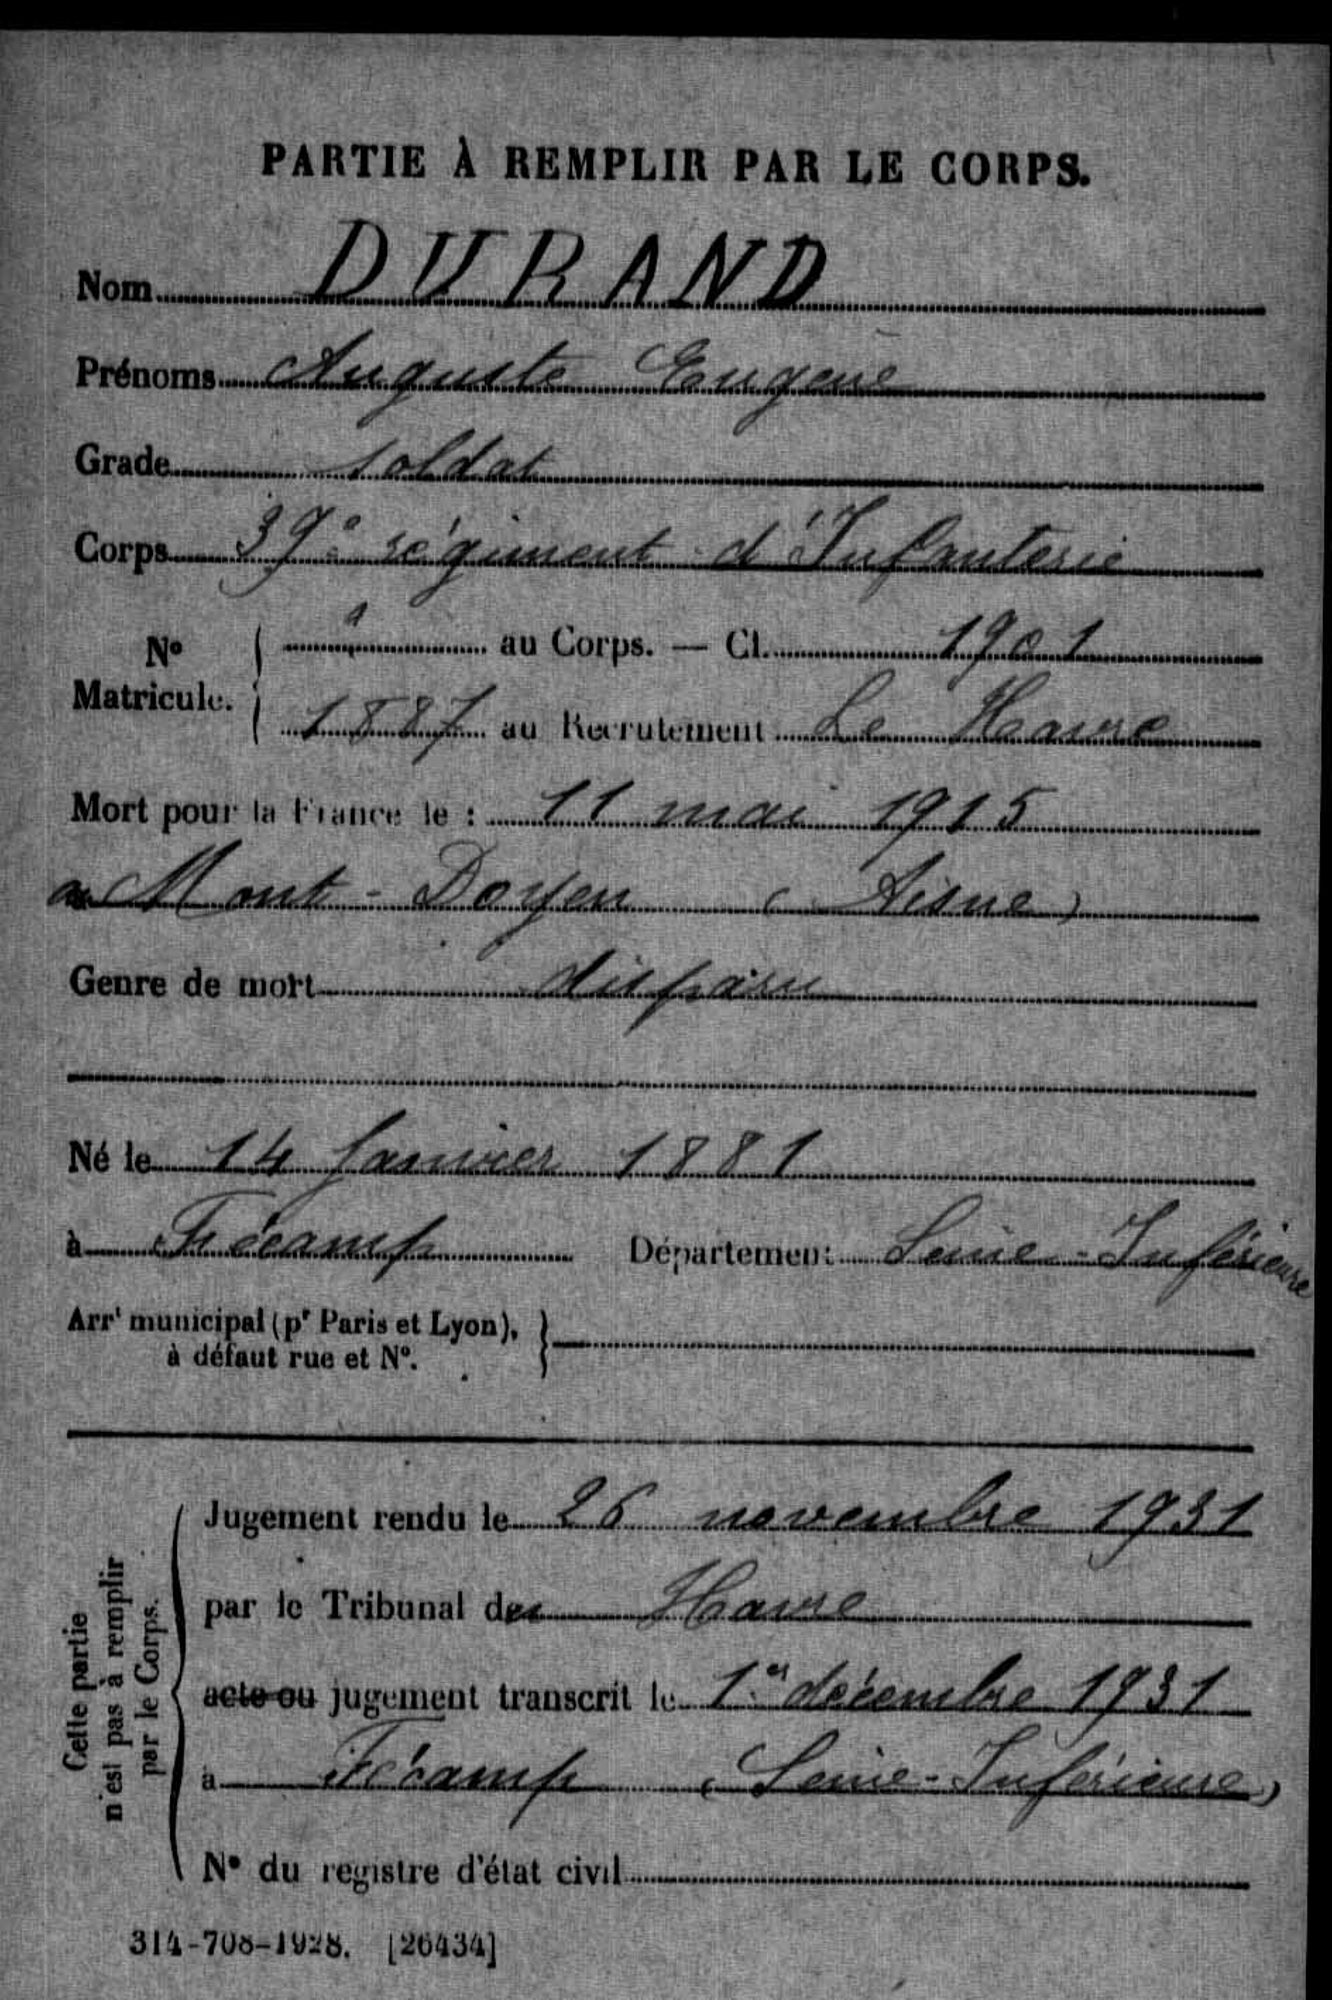 PARTIE À REMPLIR PAR LE CORPS.
Nom DURAND
Prénoms Auguste Eugène
Grade soldat
Corps 39e régiment d'Infanterie
N° Matricule. " au Corps. — Cl. 1901
1887 au Recrutement Le Havre
Mort pour la France le : 11 mai 1915
a Mont-Doyen (Aisne)
Genre de mort disparu
Né le 14 Janvier 1881
à Fécamp Département Seine-Inférieure
Arrt municipal (pr Paris et Lyon),
à défaut rue et N°.
Cette partie
n'est pas à remplir
par le Corps.
Jugement rendu le 26 novembre 1931
par le Tribunal du Havre
acte ou jugement transcrit le 1er décembre 1931
à Fécamp (Seine-Inférieure)
N° du registre d'état civil
314-708-1928. [26434]